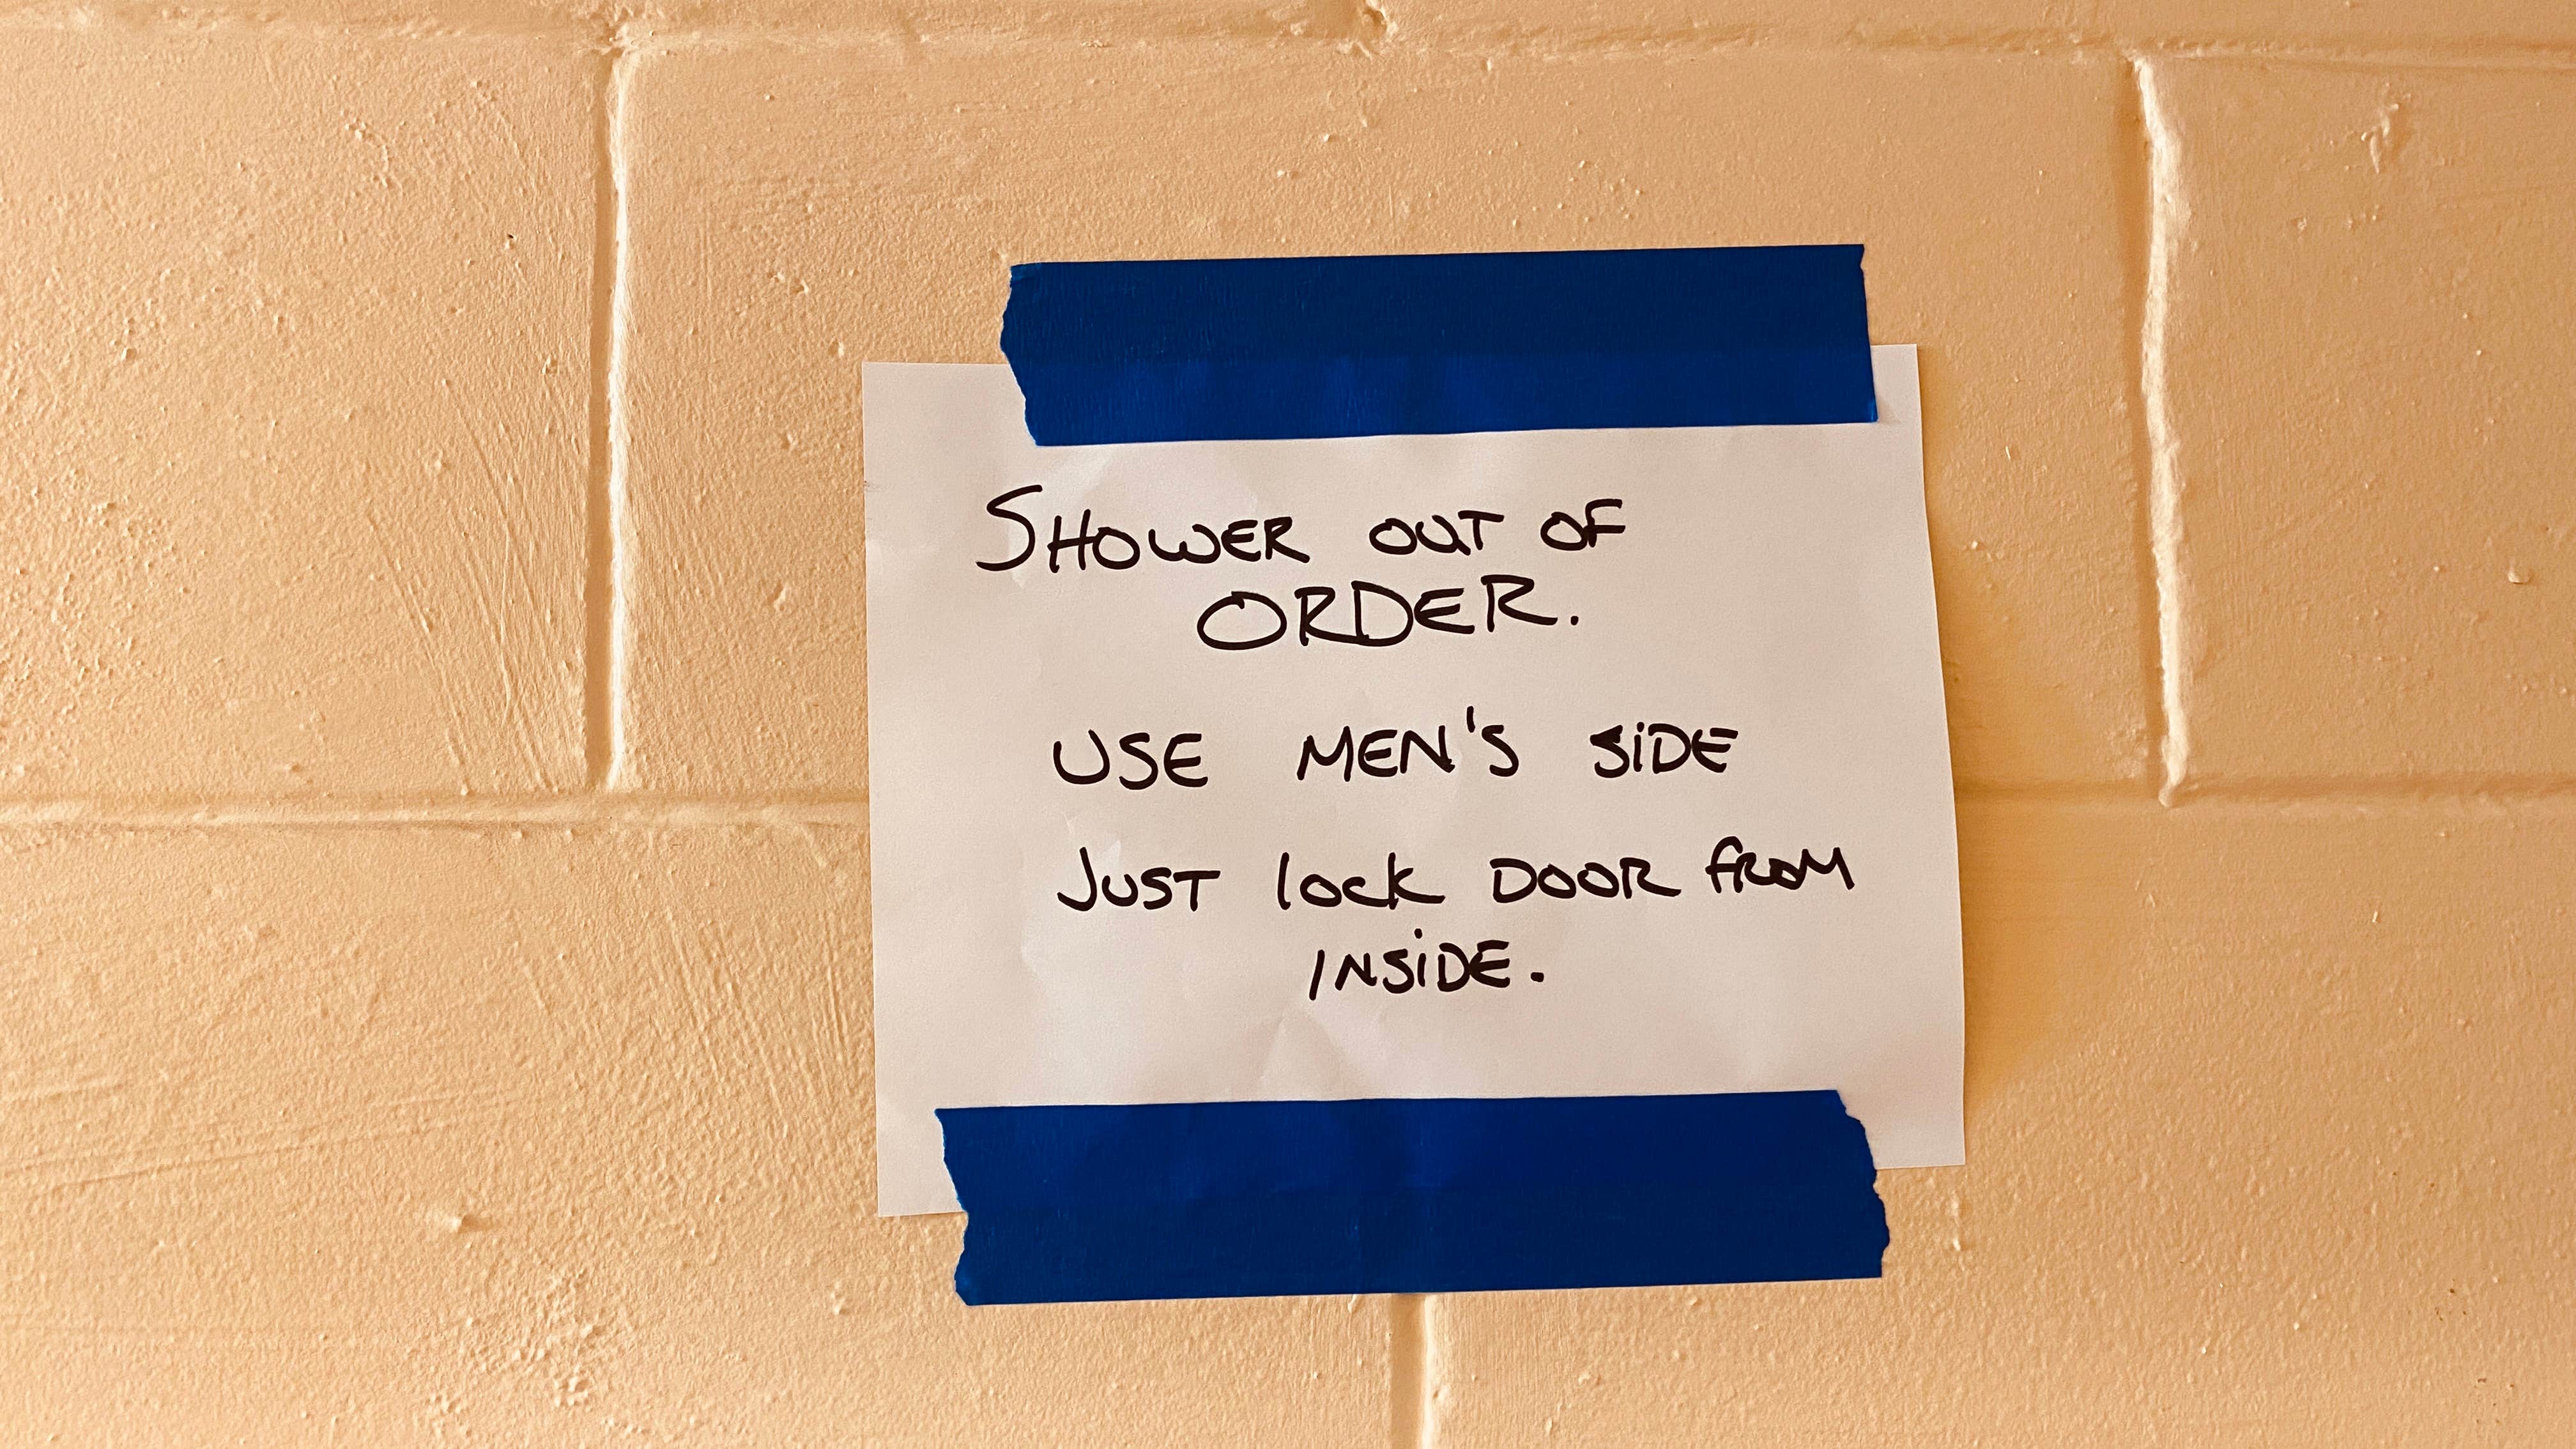 SHOWER OUT OF
ORDER.
USE MEN'S SiDE
JUST lock DOOR FROM
INSiDE.